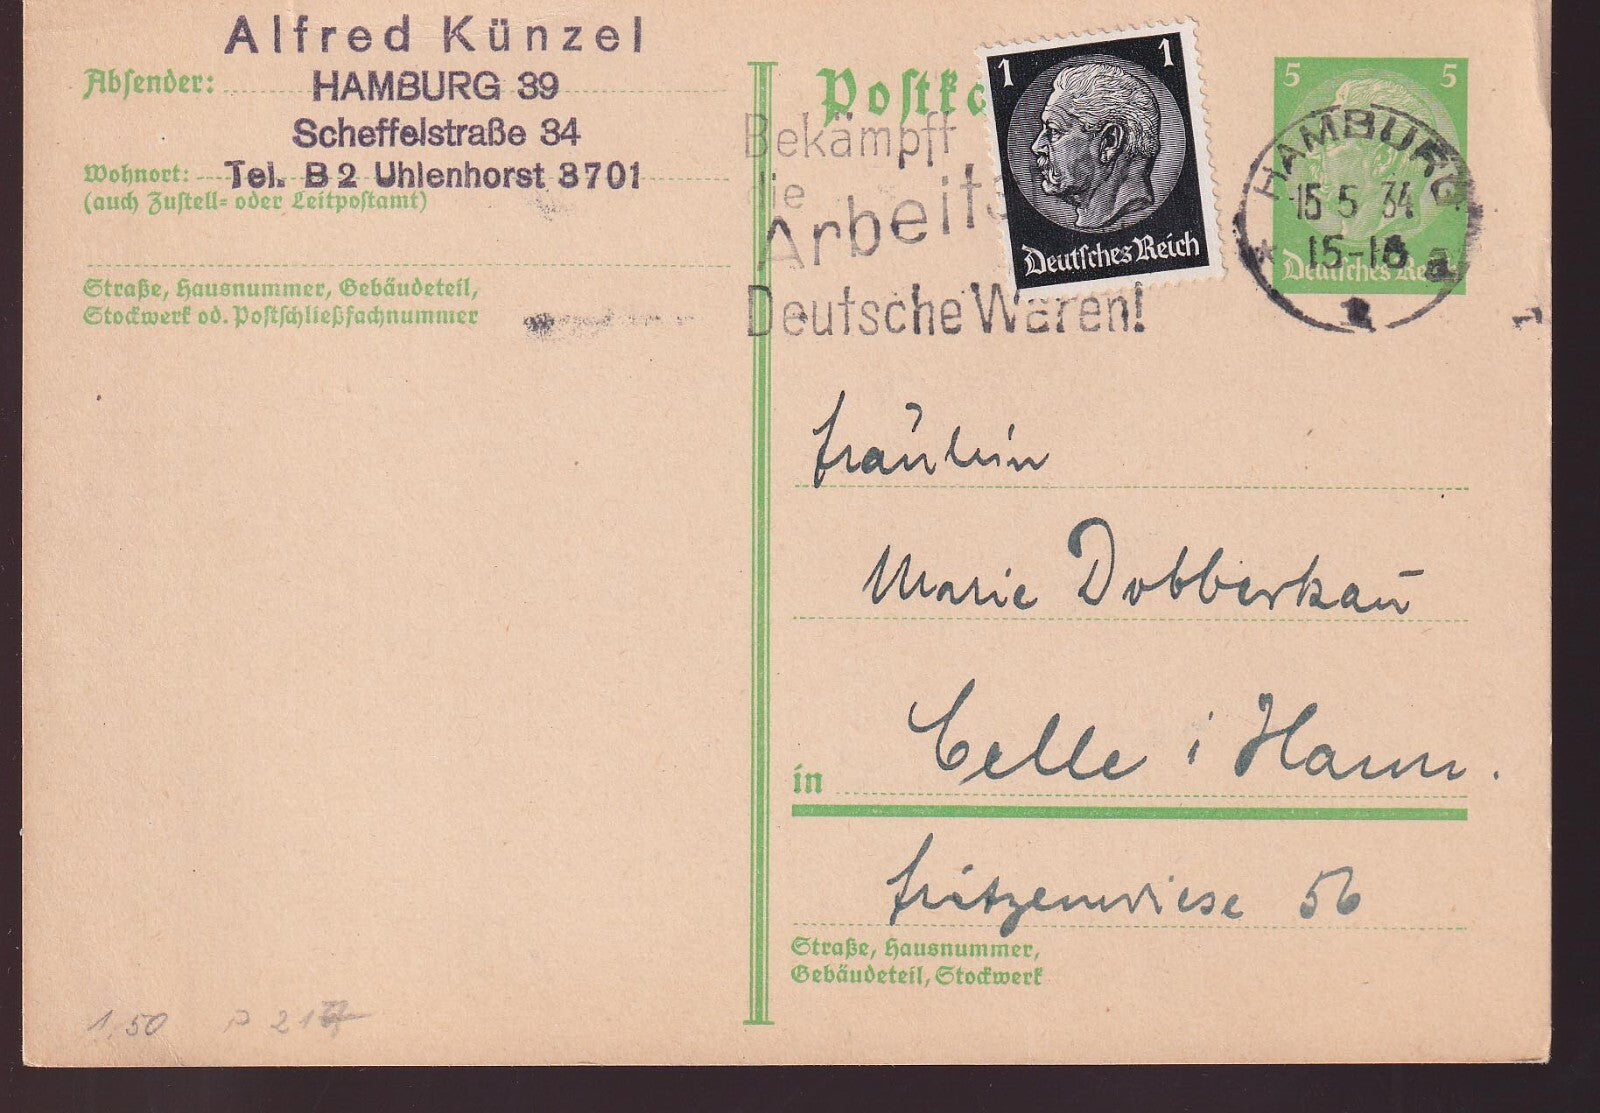 Alfred Künzel
Absender: HAMBURG 39
Scheffelstraße 34
Wohnort: Tel. B 2 Uhlenhorst 3701
(auch Zustell- oder Leitpostamt)
Straße, Hausnummer, Gebäudeteil,
Stockwerk od. Postschließfachnummer
Postka
Bekämpft
die
Arbeits
Deutsche Waren!
1 1
Deutsches Reich
5 5
Deutsches Reich
HAMBURG
15 5 34
15-16
* 1
Fräulein
Marie Dobberkau
in Celle i Hann.
Fritzenwiese 56
Straße, Hausnummer,
Gebäudeteil, Stockwerk
1,50 P 217